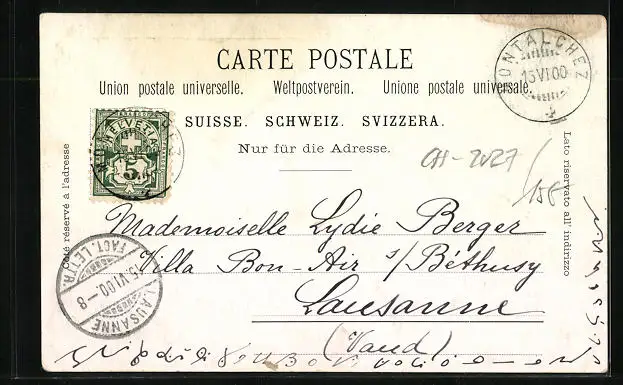 CARTE POSTALE
Union postale universelle. Weltpostverein. Unione postale universale.
SUISSE. SCHWEIZ. SVIZZERA.
Nur für die Adresse.
Côté réservé à l'adresse
Lato riservato all' indirizzo
MONTALCHEZ
15 VI 00
HELVETIA
5
CH-2027
158
Mademoiselle Lydie Berger
Villa Bon-Air s/Béthusy
Lausanne
(Vaud)
LAUSANNE
15.VI.00.-8
FACT. LETTR.